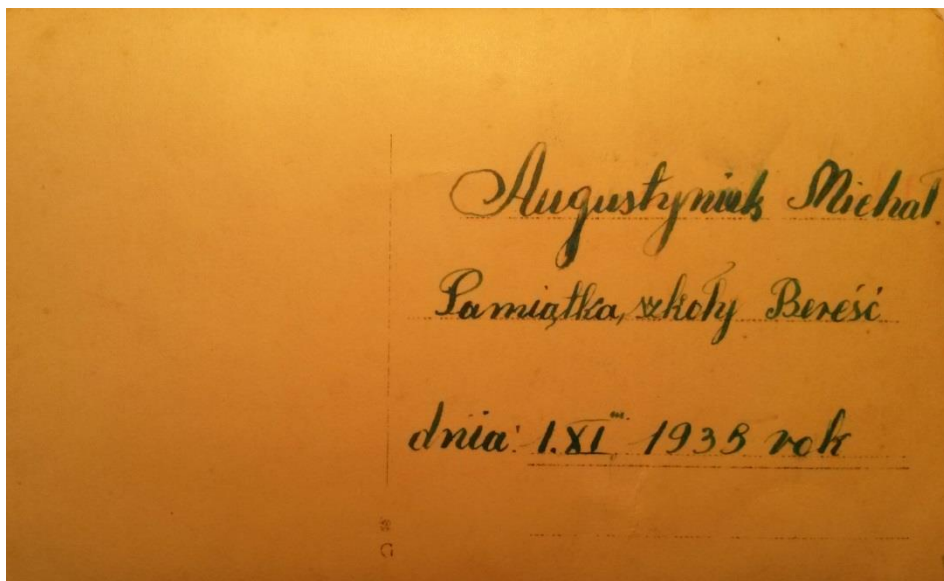 Augustyniak Michał
Pamiątka szkoły Bereść
dnia: 1.XI 1938 rok